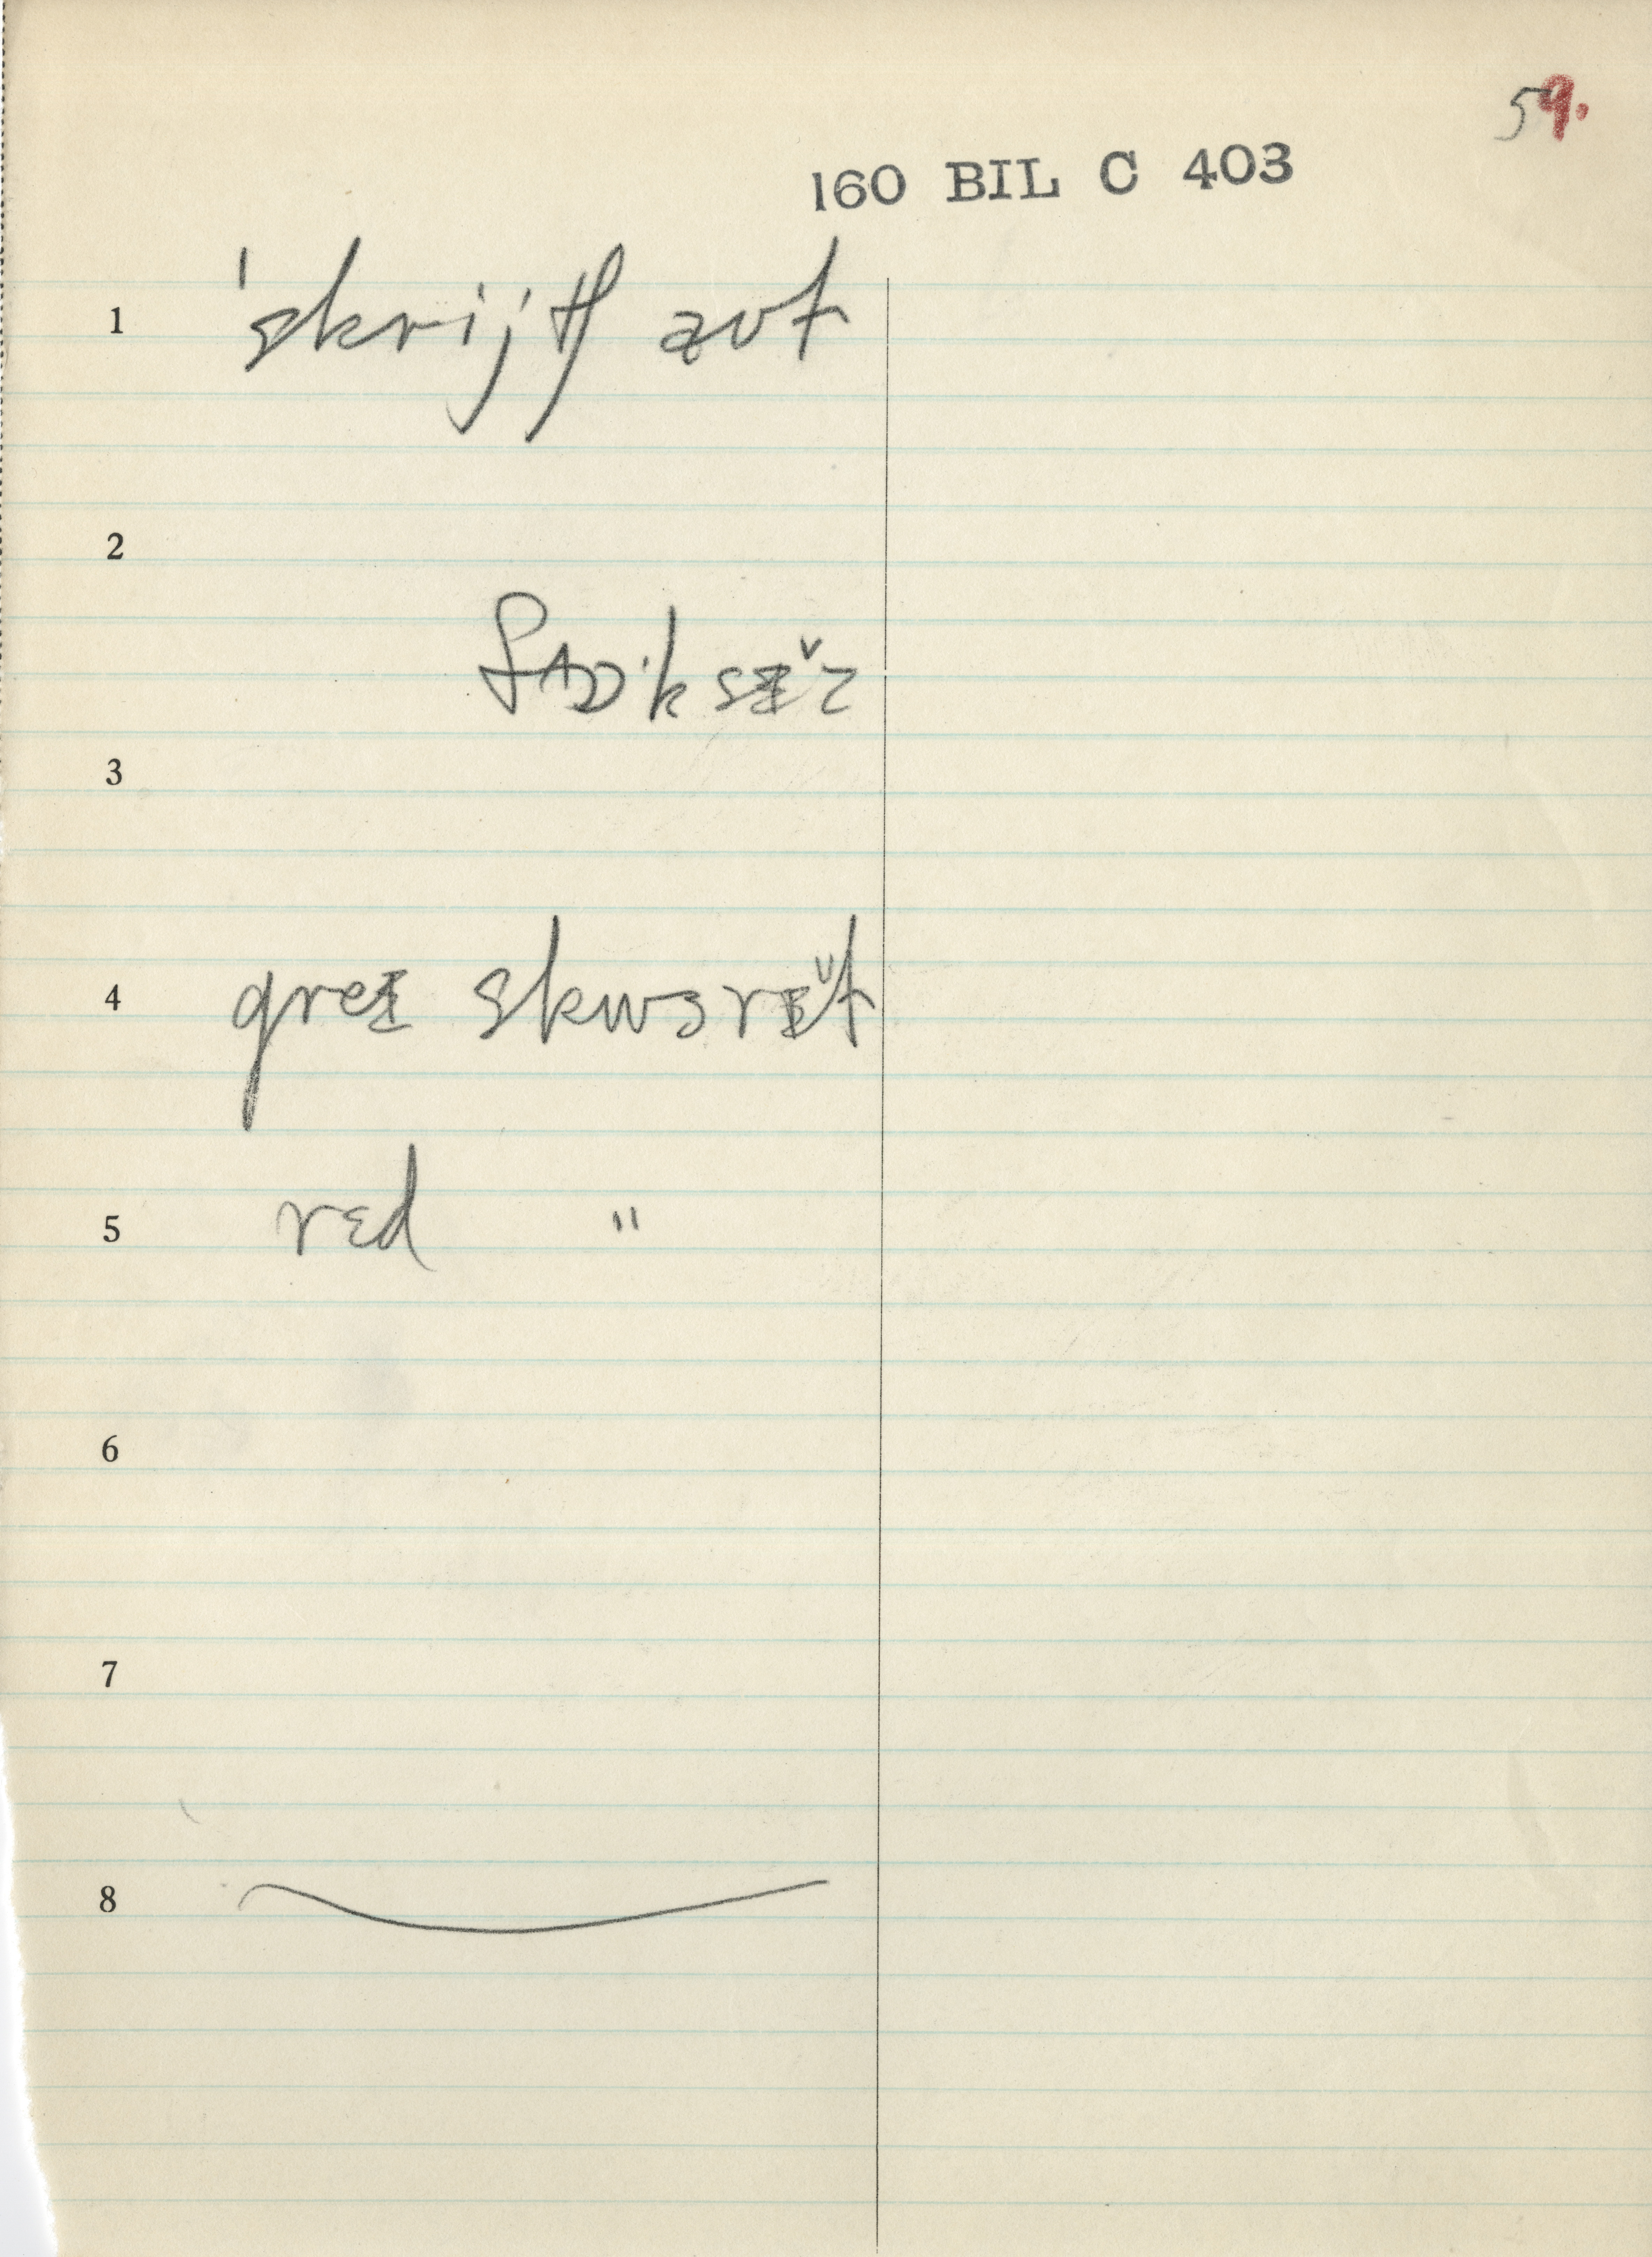 59.
160 BIL C 403
1 ˈskrijtʃ aʊt
2
3
4 greɪ skwɜrɪ̆t
5 rɛd "
6
7
8